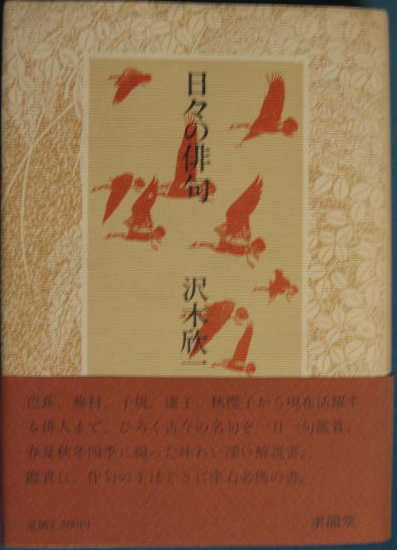 日々の俳句
沢木欣一
芭蕉、蕪村、子規、虚子、秋櫻子から現在活躍す
る俳人まで、ひろく古今の名句を一日一句鑑賞。
春夏秋冬四季に綴った味わい深い解説書。
鑑賞に、作句の手はどきに座右必携の書。
定価1,200円
求龍堂